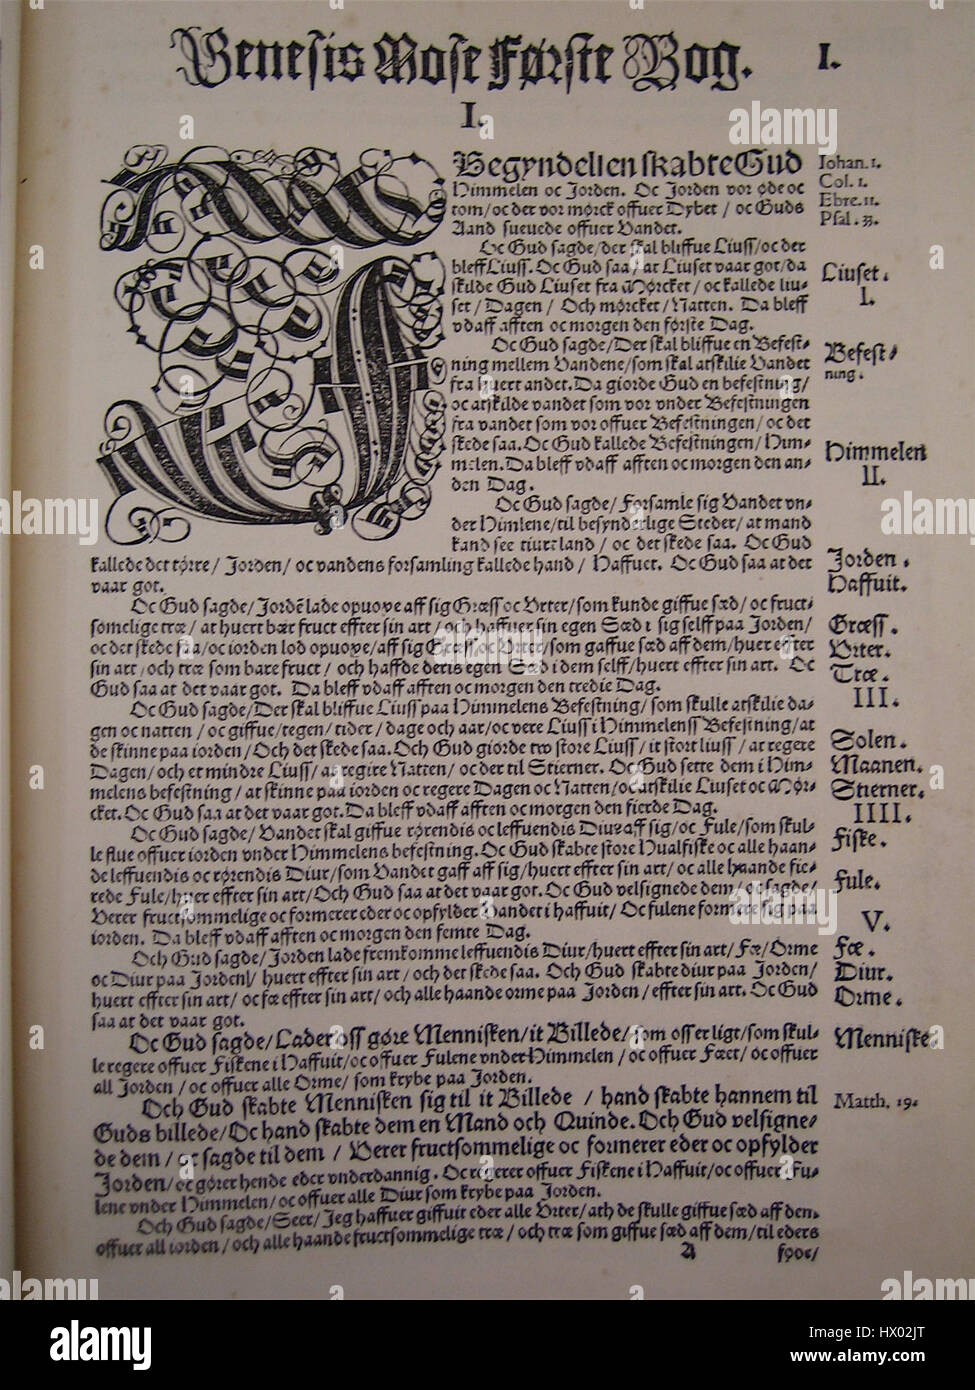 Genesis Mose Første Bog. I.
I.
I Begyndelsen skabte Gud
Himmelen oc Jorden. Oc Jorden vor øde oc
tom/ oc det vor mørck offuer Dybet / oc Guds
Aand sueuede offuer Vandet.
Oc Gud sagde/ der skal bliffue Liuss/ oc der
bleff Liuss. Oc Gud saa/ at Liuset vaar got/ da
skilde Gud Liuset fra Mørcket/ oc kallede liu-
set/ Dagen/ Och mørcket/ Natten. Da bleff
vdaff afften oc morgen den første Dag.
Oc Gud sagde/ Der skal bliffue en Befest-
ning mellem Vandene/ som skal atskilie Vandet
fra huert andet. Da giorde Gud en befestning/
oc atskilde vandet som vor vnder Befestningen
fra vandet som vor offuer Befestningen/ oc det
skede saa. Oc Gud kallede Befestningen/ Him-
melen. Da bleff vdaff afften oc morgen den an-
den Dag.
Oc Gud sagde/ Forsamle sig Vandet vn-
der Himlene/ til besynderlige Steder/ at mand
kand see tiurt land/ oc det skede saa. Oc Gud
kallede det tørre/ Jorden/ oc vandens forsamling kallede hand/ Haffuet. Oc Gud saa at det
vaar got.
Oc Gud sagde/ Jordē lade opuoxe aff sig Græss oc Vrter/ som kunde giffue sæd/ oc fruct-
sommelige træ/ at huert bær fruct effter sin art/ och haffuer sin egen Sæd i sig selff paa Jorden/
oc det skede saa/ oc iorden lod opuoxe/ aff sig Græss oc Vrter/ som gaffue sæd aff dem/ huer effter
sin art/ och træ som bare fruct/ och haffde deris egen Sæd i dem selff/ huert effter sin art. Oc
Gud saa at det vaar got. Da bleff vdaff afften oc morgen den tredie Dag.
Oc Gud sagde/ Der skal bliffue Liuss paa Himmelens Befestning/ som skulle atskilie da-
gen oc natten/ oc giffue/ tegen/ tider/ dage och aar/ oc vere Liuss i Himmelenss Befestning/ at
de skinne paa iorden/ Och det skede saa. Och Gud giorde tvo store Liuss/ it stort liuss/ at regere
Dagen/ och et mindre Liuss/ at regire Natten/ oc der til Stierner. Oc Gud sette dem i Him-
melens befestning/ at skinne paa iorden oc regere Dagen oc Natten/ oc atskilie Liuset oc Mør-
cket. Oc Gud saa at det vaar got. Da bleff vdaff afften oc morgen den fierde Dag.
Oc Gud sagde/ Vandet skal giffue rørendis oc leffuendis Diur aff sig/ oc Fule/ som skul-
le flue offuer iorden vnder Himmelens befestning. Oc Gud skabte store Hualfiske oc alle haan-
de leffuendis oc rørendis Diur/ som Vandet gaff aff sig/ huert effter sin art/ oc alle haande fie-
rede Fule/ huer effter sin art/ Och Gud saa at det vaar got. Oc Gud velsignede dem/ oc sagde/
Verer fructsommelige oc formerer eder oc opfylder Vandet i haffuit/ Oc fulene formere sig paa
iorden. Da bleff vdaff afften oc morgen den femte Dag.
Och Gud sagde/ Jorden lade fremkomme leffuendis Diur/ huert effter sin art/ Fæ/ Orme
oc Diur paa Jorden/ huert effter sin art/ och det skede saa. Och Gud skabte diur paa Jorden/
huert effter sin art/ oc fæ effter sin art/ och alle haande orme paa Jorden/ effter sin art. Oc Gud
saa at det vaar got.
Oc Gud sagde/ Lader oss gøre Mennisken/ it Billede/ som oss er ligt/ som skul-
le regere offuer Fiskene i Haffuit/ oc offuer Fulene vnder Himmelen/ oc offuer Fæet/ oc offuer
all Jorden/ oc offuer alle Orme/ som krybe paa Jorden.
Och Gud skabte Mennisken sig til it Billede/ hand skabte hannem til
Guds billede/ Oc hand skabte dem en Mand och Quinde. Och Gud velsigne-
de dem/ oc sagde til dem/ Verer fructsommelige oc formerer eder oc opfylder
Jorden/ oc gører hende eder vnderdannig. Oc regerer offuer Fiskene i Haffuit/ oc offuer Fu-
lene vnder Himmelen/ oc offuer alle Diur som krybe paa Jorden.
Och Gud sagde/ Seer/ Jeg haffuer giffuit eder alle Vrter/ ath de skulle giffue sæd aff dem
offuer all iorden/ och alle haande fructsommelige træ/ och træ som giffue sæd aff dem/ til eders
A spise/
Iohan. 1.
Col. 1.
Ebre. 11.
Psal. 33.
Liuset.
I.
Befest-
ning.
Himmelen
II.
Jorden.
Haffuit.
Græss.
Vrter.
Træ.
III.
Solen.
Maanen.
Stierner.
IIII.
Fiske.
Fule.
V.
Fæ.
Diur.
Orme.
Menniske
Matth. 19.
alamy
alamy stock photo
HX02JT
www.alamy.com